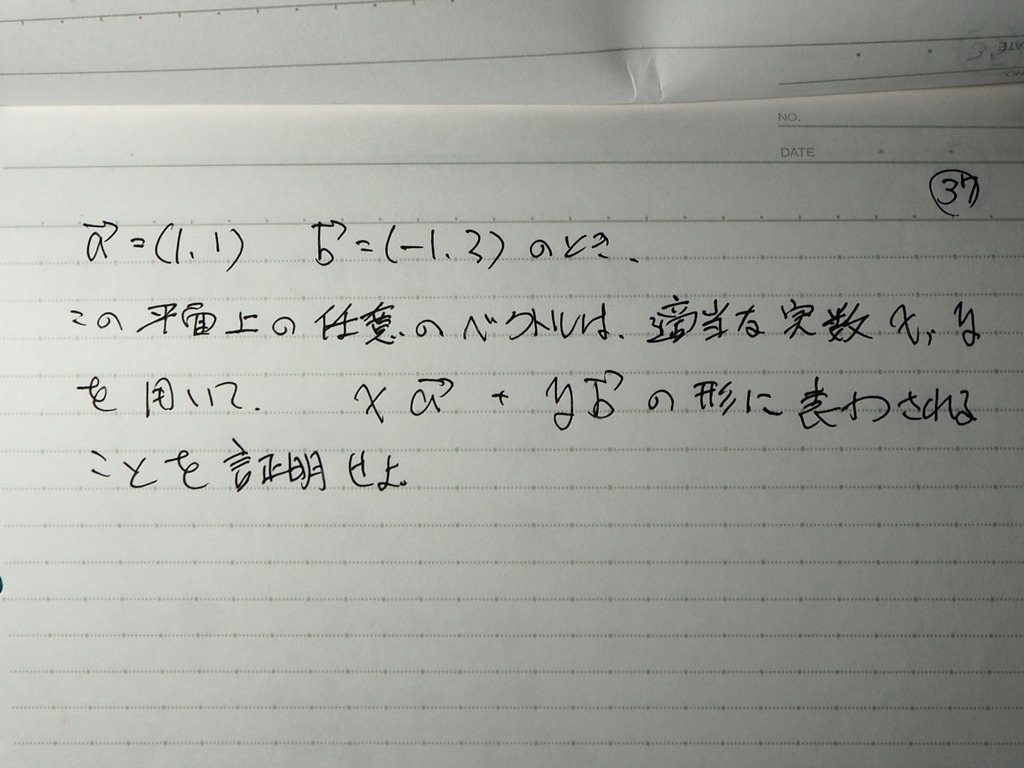 NO.
DATE
㊲
a⃗ = (1, 1)  b⃗ = (-1, 3) のとき、
この平面上の任意のベクトルは、適当な実数 x, y
を用いて、 x a⃗ + y b⃗ の形に表わされる
ことを証明せよ。